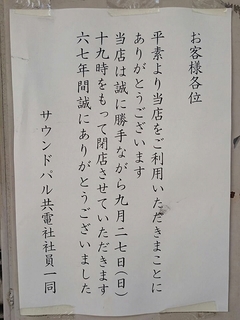 お客様各位
平素より当店をご利用いただきまことに
ありがとうございます
当店は誠に勝手ながら九月二七日（日）
十九時をもって閉店させていただきます
六七年間誠にありがとうございました
サウンドパル共電社社員一同